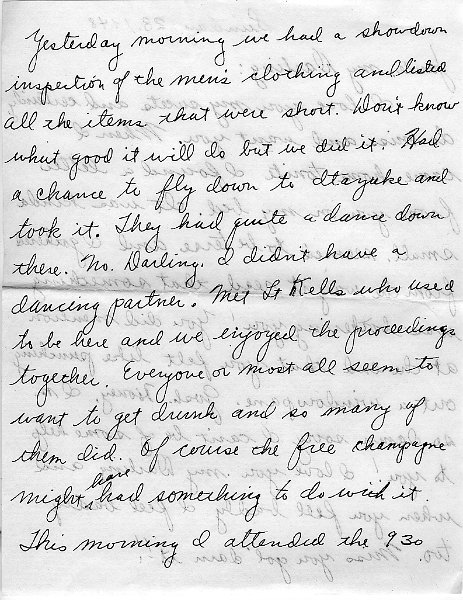 Yesterday morning we had a showdown
inspection of the men's clothing and listed
all the items that were short. Don't know
what good it will do but we did it. Had
a chance to fly down to Itazuke and
took it. They had quite a dance down
there. No. Darling. I didn't have a
dancing partner. Met Lt Kells who used
to be here and we enjoyed the proceedings
together. Everyone or most all seem to
want to get drunk and so many of
them did. Of course the free champagne
might have had something to do with it.
This morning I attended the 930